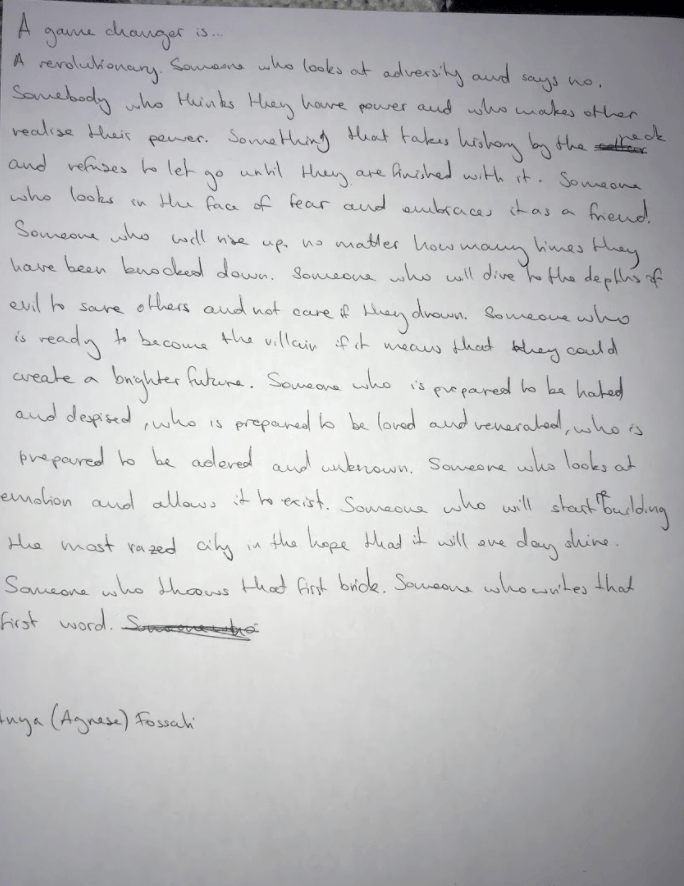 A game changer is...
A revolutionary. Someone who looks at adversity and says no.
Somebody who thinks they have power and who makes other
realise their power. Something that takes history by the neck
and refuses to let go until they are finished with it. Someone
who looks in the face of fear and embraces it as a friend.
Someone who will rise up, no matter how many times they
have been knocked down. Someone who will dive to the depths of
evil to save others and not care if they drown. Someone who
is ready to become the villain if it means that they could
create a brighter future. Someone who is prepared to be hated
and despised, who is prepared to be loved and venerated, who is
prepared to be adored and unknown. Someone who looks at
emotion and allows it to exist. Someone who will start building
the most razed city in the hope that it will one day shine.
Someone who throws that first brick. Someone who writes that
first word. Someone who
(Agnese) Fossati